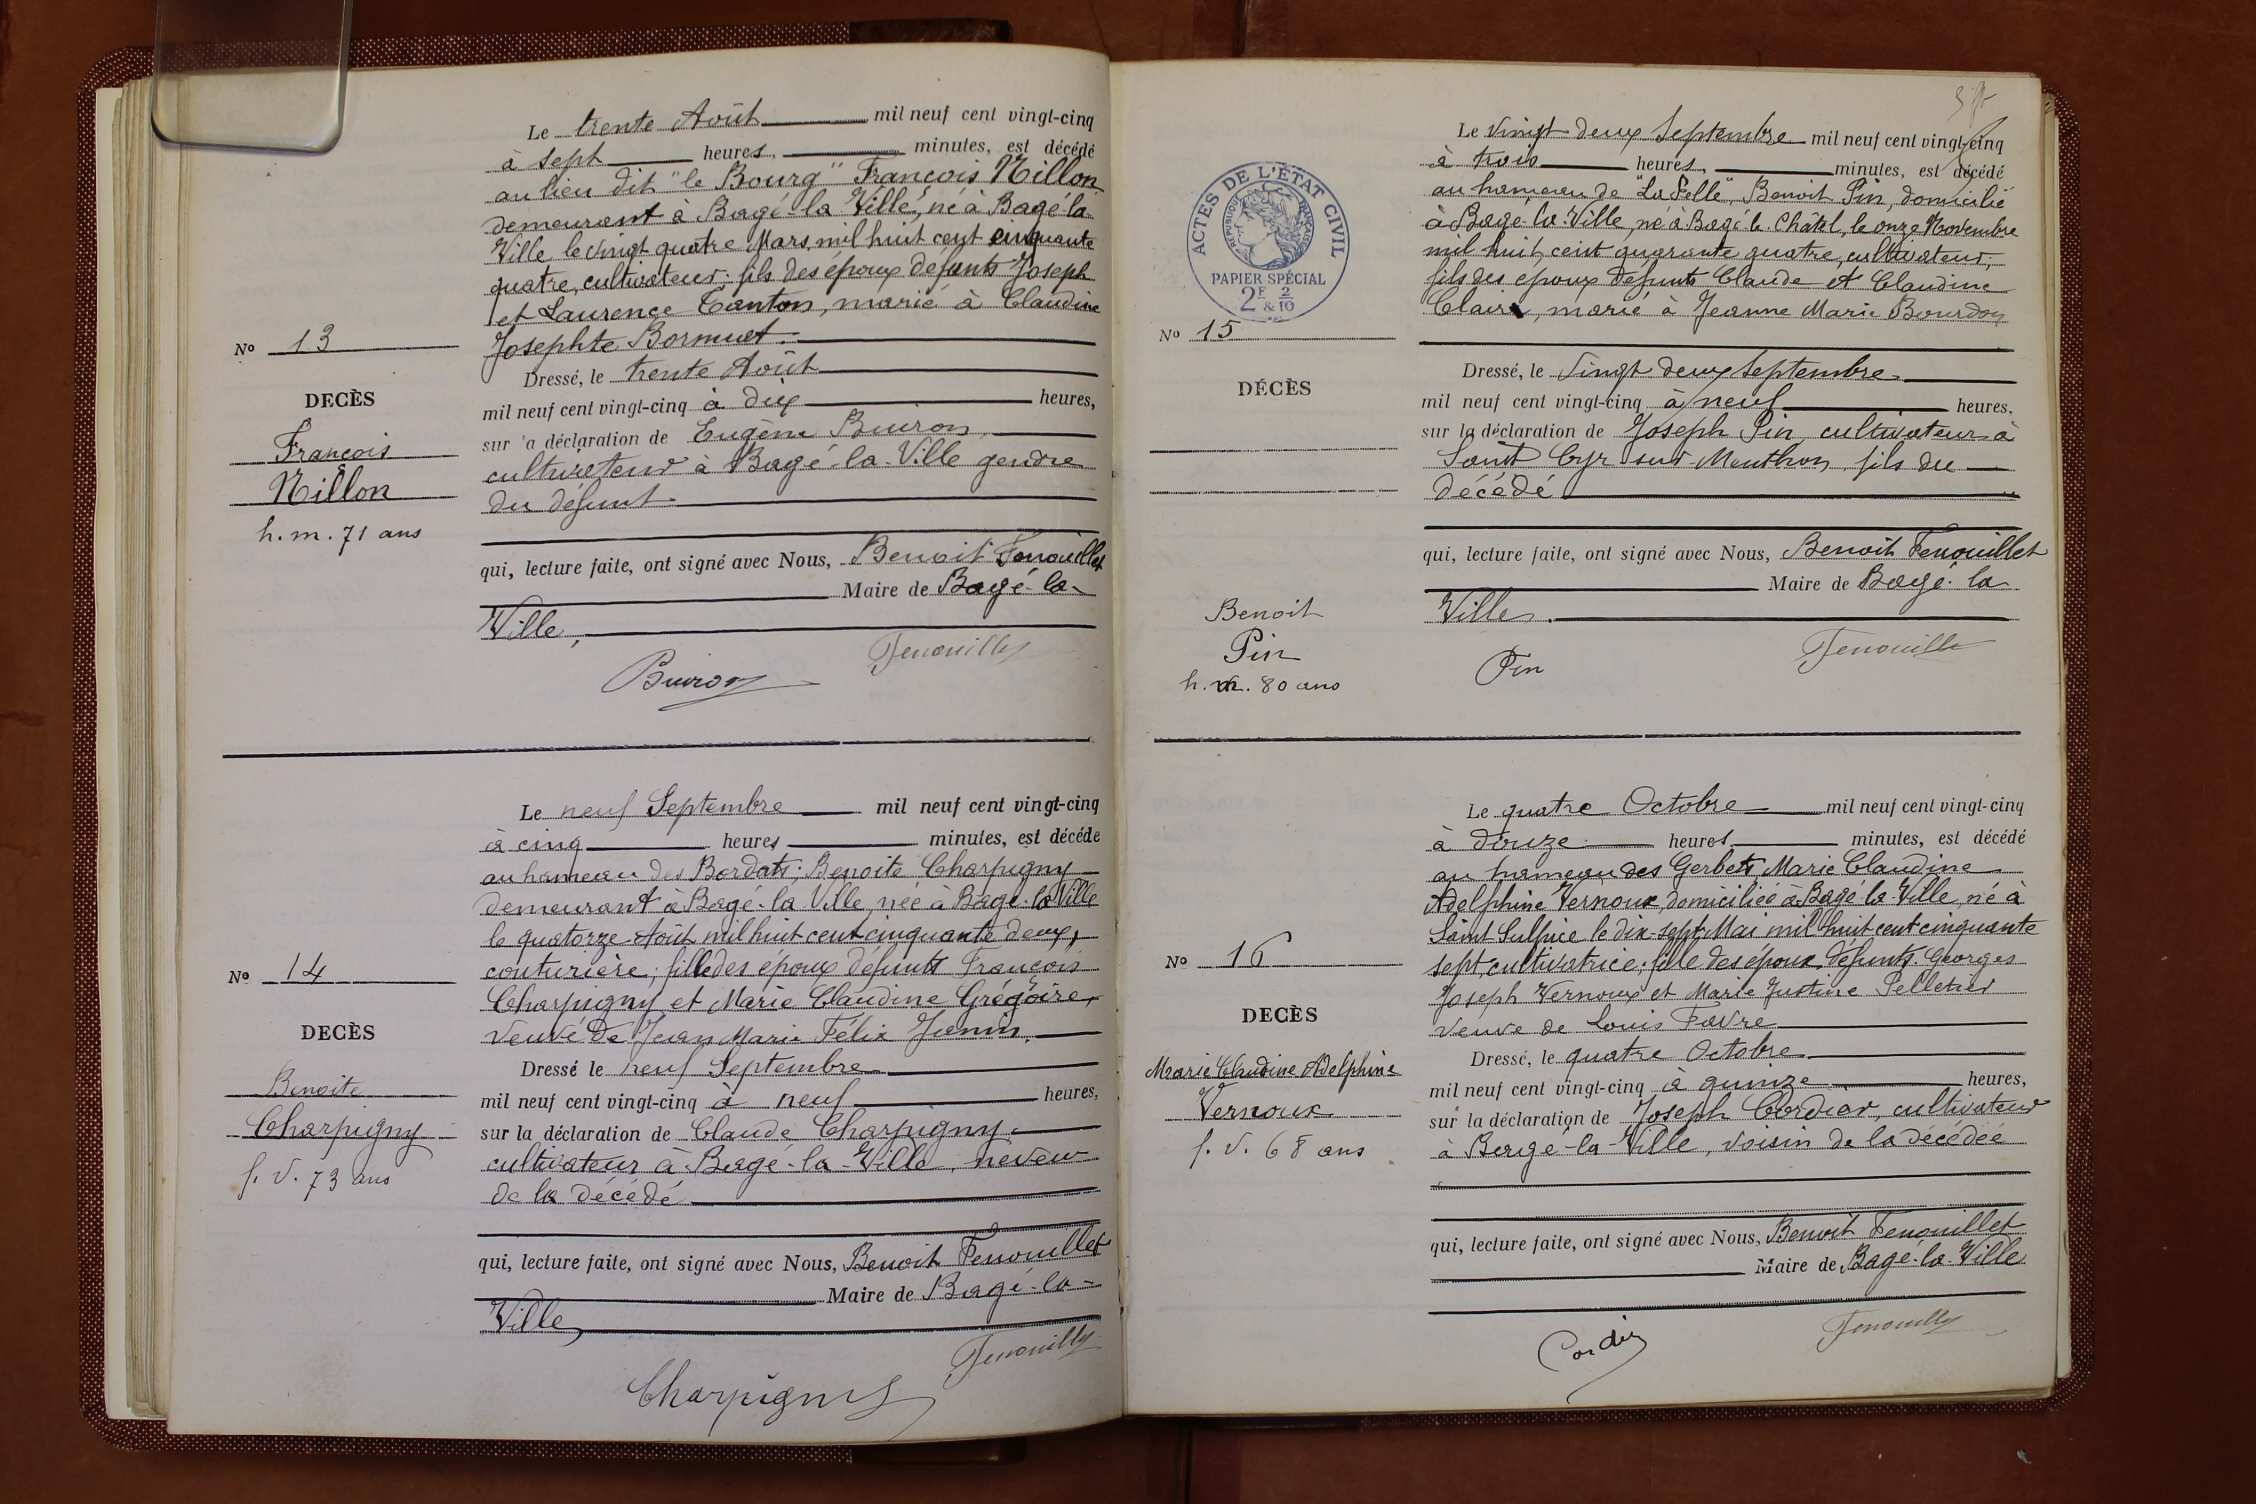 Le trente Août mil neuf cent vingt-cinq
à sept heures, minutes, est décédé
au lieu dit "le Bourg" François Nillon
demeurant à Bagé-la Ville, né à Bagé-la-
Ville le vingt quatre Mars mil huit cent cinquante
quatre, cultivateur; fils des époux défunts Joseph
et Laurence Canton, marié à Claudine
Josephte Bormuet.
Dressé, le trente Août
mil neuf cent vingt-cinq à dix heures,
sur la déclaration de Eugène Buiron,
cultivateur à Bagé-la-Ville gendre
du défunt
qui, lecture faite, ont signé avec Nous, Benoit Fenouillet
Maire de Bagé-la-
Ville,
Buiron Fenouillet
No 13
DECÈS
François
Nillon
h. m. 71 ans
Le neuf Septembre mil neuf cent vingt-cinq
à cinq heures minutes, est décéde
au hameau des Bordats; Benoite Charpigny
demeurant à Bagé-la Ville, née à Bagé-la Ville
le quatorze Août mil huit cent cinquante deux,
couturière; fille des époux défunts François
Charpigny et Marie Claudine Grégoire,
veuve de Jean Marie Félix Janin,
Dressé le neuf Septembre
mil neuf cent vingt-cinq à neuf heures,
sur la déclaration de Claude Charpigny
cultivateur à Bagé-la-Ville, neveu
de la décédé
qui, lecture faite, ont signé avec Nous, Benoit Fenouillet
Maire de Bagé-la-
Ville
Fenouillet
Charpigny
No 14
DECÈS
Benoite
Charpigny
f. v. 73 ans
Le vingt deux Septembre mil neuf cent vingt-cinq
à trois heures, minutes, est décédé
au hameau de "La Selle", Benoit Pin, domicilié
à Bagé-la-Ville, né à Bagé le Châtel, le onze Novembre
mil huit cent quarante quatre, cultivateur;
fils des époux défunts Claude et Claudine
Clair, marié à Jeanne Marie Bourdon
Dressé, le Vingt deux Septembre
mil neuf cent vingt-cinq à neuf heures,
sur la déclaration de Joseph Pin, cultivateur à
Saint Cyr sur Menthon, fils du
décédé
qui, lecture faite, ont signé avec Nous, Benoit Fenouillet
Maire de Bagé-la
Ville.
Pin Fenouillet
ACTES DE L'ÉTAT CIVIL
REPUBLIQUE FRANÇAISE
PAPIER SPÉCIAL
2F & 2/10
No 15
DÉCÈS
Benoit
Pin
h. m. 80 ans
Le quatre Octobre mil neuf cent vingt-cinq
à douze heures minutes, est décédé
au hameau des Gerbets, Marie Claudine
Adelphine Vernoux, domiciliée à Bagé-la-Ville, né à
Saint Sulpice le dix-sept Mai mil huit cent cinquante
sept, cultivatrice; fille des époux défunts Georges
Joseph Vernoux et Marie Justine Pelletier
veuve de Louis Favre
Dressé, le quatre Octobre
mil neuf cent vingt-cinq à quinze heures,
sur la déclaration de Joseph Cordier, cultivateur
à Bagé-la Ville, voisin de la décédée
qui, lecture faite, ont signé avec Nous, Benoit Fenouillet
Maire de Bagé-la-Ville
Cordier Fenouillet
No 16
DECÈS
Marie Claudine Adelphine
Vernoux
f. v. 68 ans